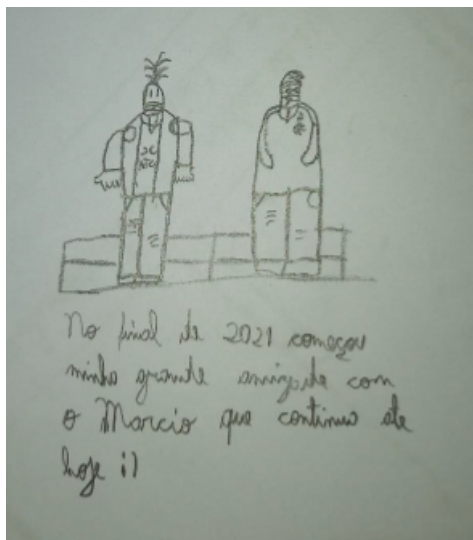 No final de 2021 começou
minha grande amizade com
o Marcio que continua até
hoje :)